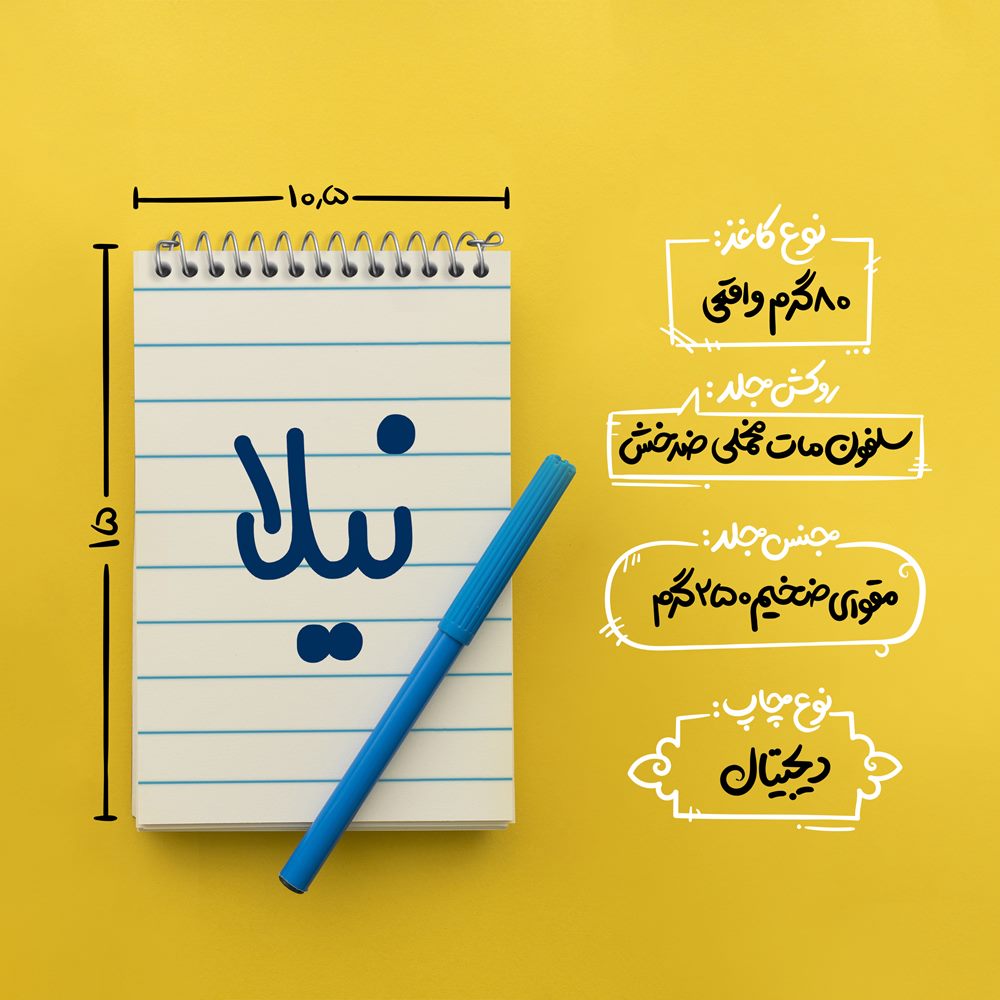 ۱۰٫۵
۱۵
نیلا
نوع کاغذ:
۸۰گرم واقعی
روکش جلد:
سلفون مات مخملی ضدخش
جنس جلد:
مقوای ضخیم ۲۵۰گرم
نوع چاپ:
دیجیتال